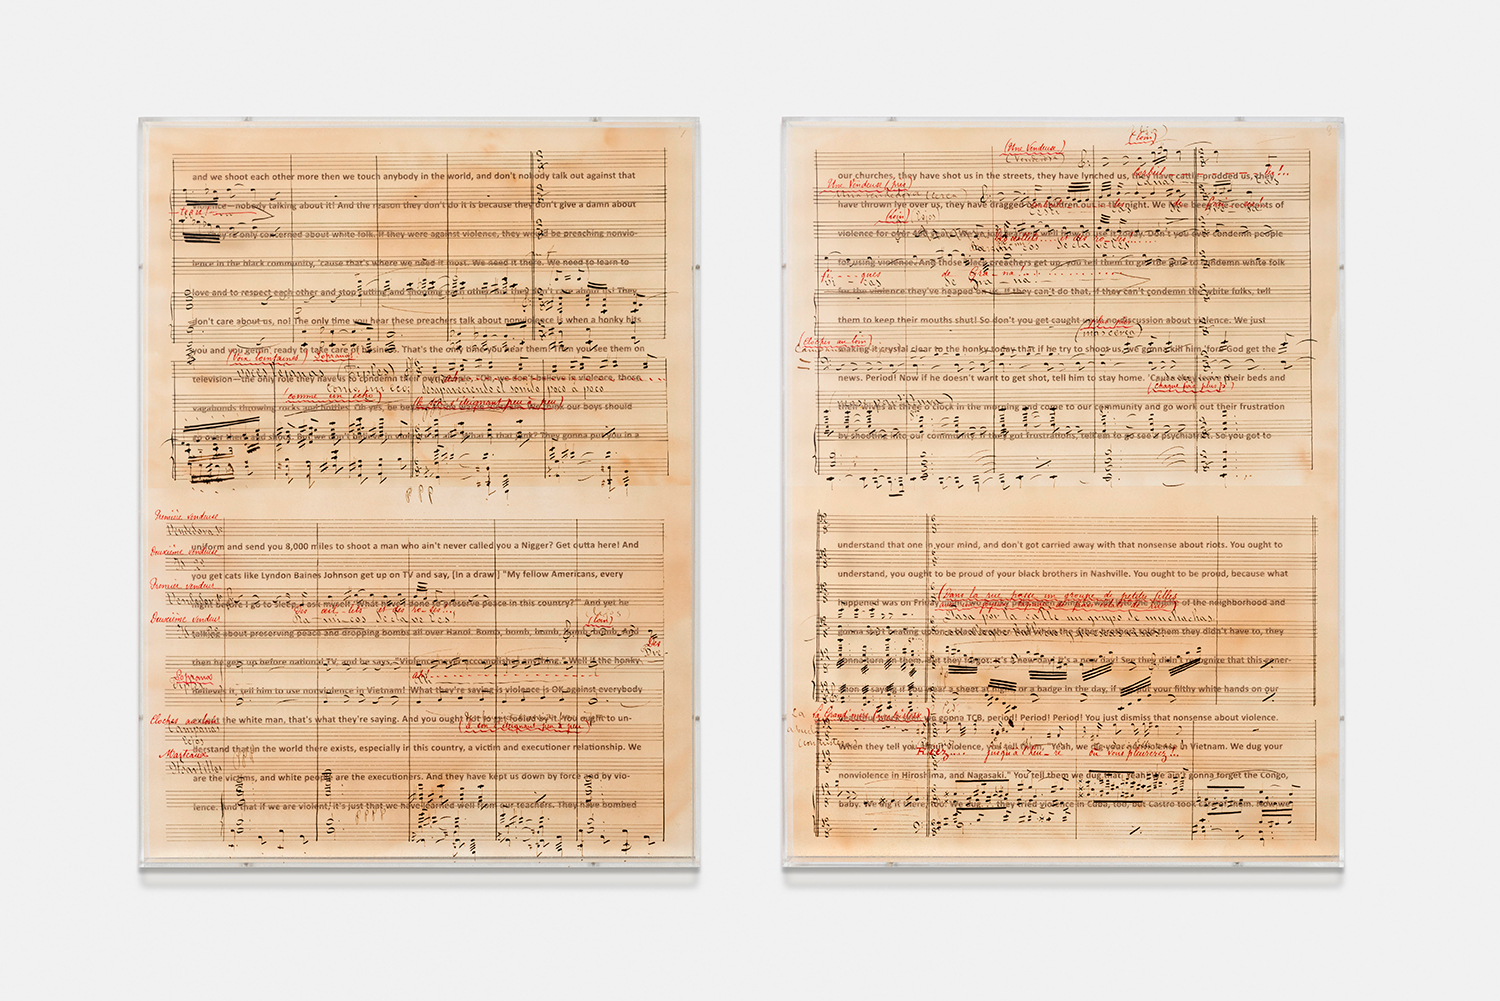 and we shoot each other more then we touch anybody in the world, and don't nobody talk out against that
violence—nobody talking about it! And the reason they don't do it is because they don't give a damn about
only concerned about white folk. If they were against violence, they would be preaching nonvio-
lence in the black community, 'cause that's where we need it most. We need it there. We need to learn to
love and to respect each other and stop cutting and shooting each other. But they don't care about us! They
don't care about us, no! The only time you hear these preachers talk about nonviolence is when a honky hits
you and you gettin' ready to take care of business. That's the only time you hear them! Then you see them on
(Voix lointaines) Sopranos
television—the only role they have is to condemn their own. "Oh, we don't believe in violence, those
comme un écho)
desapareciendo el sonido poco a poco
(le son s'éteignant peu à peu)
vagabonds throwing rocks and bottles. Oh yes, our boys should
go over there and shoot. But we don't believe in violence What is that junk? They gonna put you in a
PPP
Première vendeuse
Vendedora 1ª
uniform and send you 8,000 miles to shoot a man who ain't never called you a Nigger? Get outta here! And
Deuxième vendeuse
you get cats like Lyndon Baines Johnson get up on TV and say, [In a drawl] "My fellow Americans, every
Première vendeuse
night before I go to sleep, I ask myself, What have I done to preserve peace in this country?" And yet he
Des œil-lets et des ro-ses!..
Deuxième vendeuse
Ra-mi-cos de cla-ve-les!
(loin)
talking about preserving peace and dropping bombs all over Hanoi. Bomb, bomb, bomb, bomb, bomb. And
Des
then he gets up before national TV, and he says, "Violence never accomplished anything." Well if the honky
Sopranos
ah!
believes it, tell him to use nonviolence in Vietnam! What they're saying is violence is OK against everybody
Cloches au loin
Campanas lejos
but the white man, that's what they're saying. And you ought not to get fooled by it. You ought to un-
(le son s'éteignant peu à peu)
derstand that in the world there exists, especially in this country, a victim and executioner relationship. We
Marteaux
Martillos
are the victims, and white people are the executioners. And they have kept us down by force and by vio-
lence. And that if we are violent, it's just that we have learned well from our teachers. They have bombed
(loin)
(Une Vendeuse)
(Vendedora)
our churches, they have shot us in the streets, they have lynched us, they have cattle-prodded us, they
Une Vendeuse (près)
Una vendedora (cerca)
have thrown lye over us, they have dragged our children out in the night. We have been the recipients of
(loin) (lejos)
violence for over 400 years. We've just learned well how to use it today. Don't you ever condemn people
Des œillets et des ro-ses!
for using violence. And those black preachers get up, you tell them to get the guts to condemn white folk
fi-gues de Gra-na!
de Gra-na
for the violence they've heaped on us. If they can't do that, if they can't condemn the white folks, tell
them to keep their mouths shut! So don't you get caught up in no discussion about violence. We just
(plus près)
(mas cerca)
(Cloches au loin)
making it crystal clear to the honky today that if he try to shoot us, we gonna kill him 'fore God get the
news. Period! Now if he doesn't want to get shot, tell him to stay home. 'Cause they leave their beds and
(chaque fois plus)
their wives at three o'clock in the morning and come to our community and go work out their frustration
by shooting into our community. If they got frustrations, tell 'em to go see a psychiatrist. So you got to
understand that one in your mind, and don't got carried away with that nonsense about riots. You ought to
understand, you ought to be proud of your black brothers in Nashville. You ought to be proud, because what
(Dans la rue passe un groupe de petites filles
happened was on Friday of the neighborhood and
Pasa por la calle un grupo de muchachas
gonna start beating upon them they didn't have to, they
gonna turn on them. But they forgot: it's a new day! It's a new day! See they didn't recognize that this gener-
ation is saying if you wear a sheet at night or a badge in the day, if you put your filthy white hands on our
La Grand'mère
La abuela
we gonna TCB, period! Period! Period! You just dismiss that nonsense about violence.
When they tell you about violence, you tell them, "Yeah, we dig your nonviolence in Vietnam. We dug your
Riez... jusqu'à l'heu-re où vous pleurerez!..
nonviolence in Hiroshima, and Nagasaki." You tell them we dug that, yeah! We ain't gonna forget the Congo,
baby. We dig it there, too! We dug. . . they tried violence in Cuba, too, but Castro took care of them. Now, we